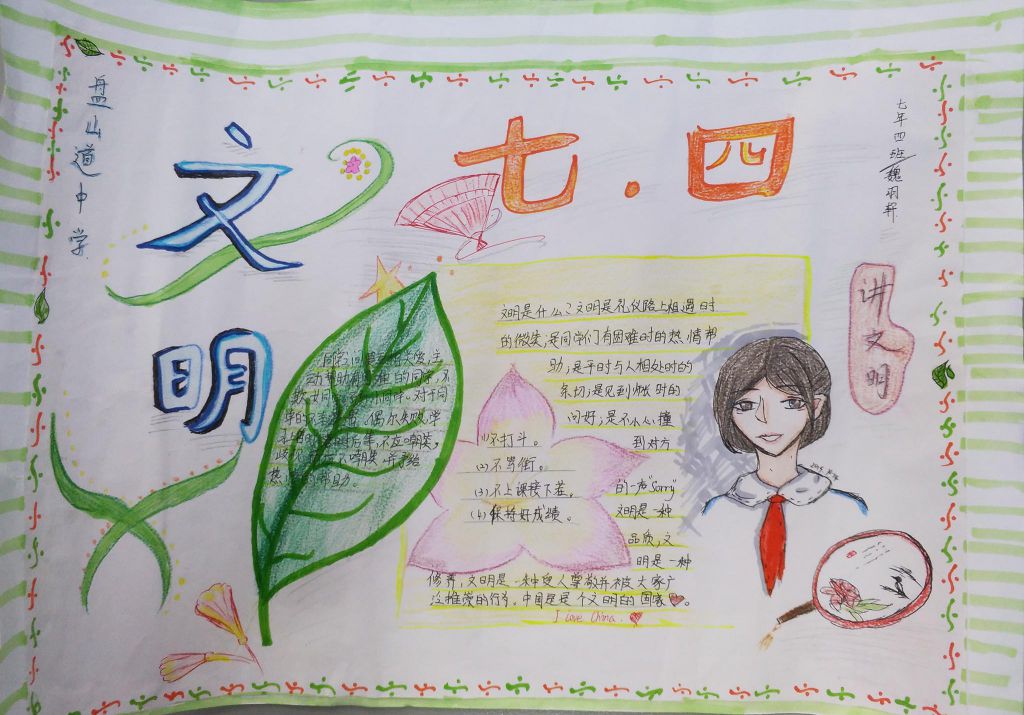 盘山道中学
文明
七·四
七年四班
魏羽
讲文明
文明是什么？文明是礼仪路上相遇时
的微笑；是同学们有困难时的热情帮
助；是平时与人相处时的
亲切；是见到师长时的
问好；是不小心撞
到对方
的一声"Sorry"
文明是一种
品质，文
明是一种
修养，文明是一种受人尊敬并被大家广
泛推崇的行为。中国是是个文明的国家。
I love China.
(1)不打斗。
(2)不骂街。
(3)不上课接下差。
(4)保持好成绩。
同学
主
动帮助有
的同学，不
欺
同
对于同
学的
偶尔失败，学
不应嘲笑，
歧
嘲笑
并予给
热
帮助。